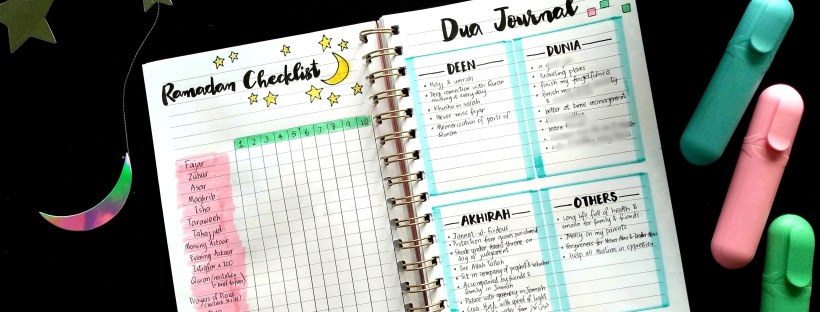 Ramadan Checklist
1 2 3 4 5 6 7 8 9 10
Fajar
Zuhur
Asar
Maghrib
Isha
Taraweeh
Tahajjud
Morning Azkaar
Evening Azkaar
Istigfar x 100
Quran
Dua Journal
DEEN
• Hajj & umrah
• Deep connection with Quran
everyday
• Khushu in salah
• Never miss fajar
• Memorization of parts of
Quran
DUNIA
• traveling places
• finish my
• finish
• better at time management
• learn
AKHIRAH
• Jannat-ul-Firdous
• Protection from grave punishment
• Shade under throne on
day of judgement
• See Allah
• Sit in company of prophet &
• Accompanied by friends &
family in Jannah
• Palace with greenery in Jannah
• Cross with speed of light
OTHERS
• Long life full of health &
emaan for family & friends
• Mercy on my parents
• Forgiveness for
• Help all Muslims in oppression